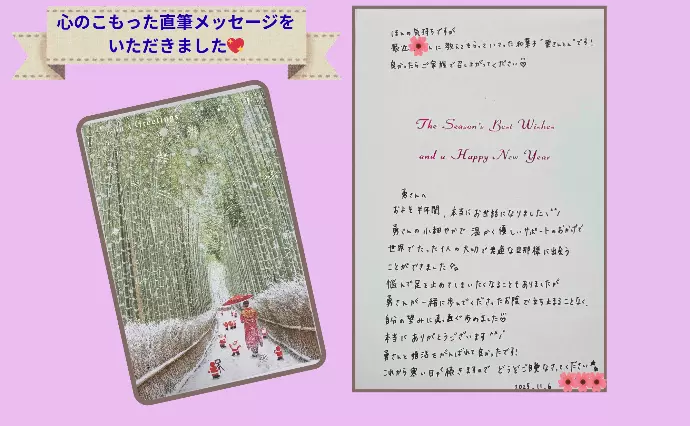 心のこもった直筆メッセージを
いただきました💖
Greetings
ほんの気持ちですが
最近 んに教えてもらっていた和菓子"栗きんとん"です!
良かったらご家族で召し上がってください
The Season's Best Wishes
and a Happy New Year
勇さんへ
およそ半年間、本当にお世話になりました
勇さんの小細やかで温かく優しいサポートのおかげで
世界でたった1人の大切で素適な旦那様に出会う
ことができました
悩んで足を止めてしまいたくなることもありましたが
勇さんが一緒に歩んでくださったお陰で立ち止まることなく、
自分の望みに真っ直ぐ歩めました
本当にありがとうございます
勇さんと婚活をがんばれて良かったです!
これから寒い日が続きますので どうぞご自愛なさってください
2025.11.6